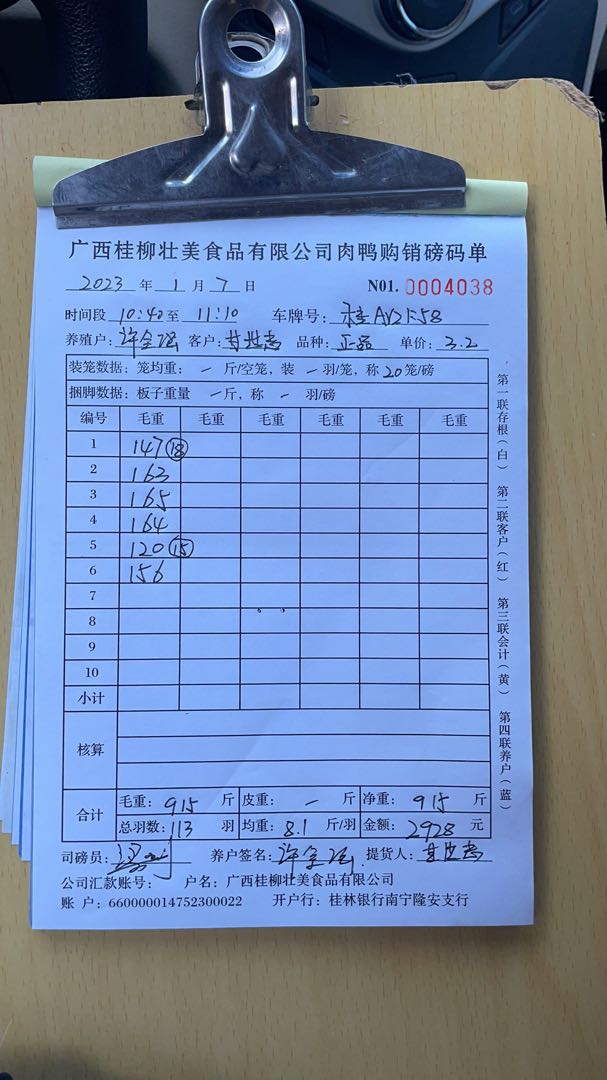 广西桂柳壮美食品有限公司肉鸭购销磅码单
2023 年 1 月 7 日 N01. 0004038
时间段 10:40 至 11:10 车牌号: 桂AV2F58
养殖户: 许全强 客户: 甘世高 品种: 正品 单价: 3.2
装笼数据: 笼均重: — 斤/空笼, 装 — 羽/笼, 称 20 笼/磅
捆脚数据: 板子重量 — 斤, 称 — 羽/磅
编号 毛重 毛重 毛重 毛重 毛重 毛重
1 147 ⑱
2 163
3 165
4 164
5 120 ⑮
6 156
7
8
9
10
小计
核算
合计 毛重: 915 斤 皮重: — 斤 净重: 915 斤
总羽数: 113 羽 均重: 8.1 斤/羽 金额: 2928 元
司磅员: 养户签名: 许全强 提货人: 甘世高
公司汇款账号: 户名: 广西桂柳壮美食品有限公司
账 户: 660000014752300022 开户行: 桂林银行南宁隆安支行
第一联存根(白) 第二联客户(红) 第三联会计(黄) 第四联养户(蓝)